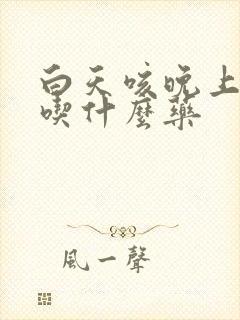 白天咳晚上
喫什麼藥
風一聲